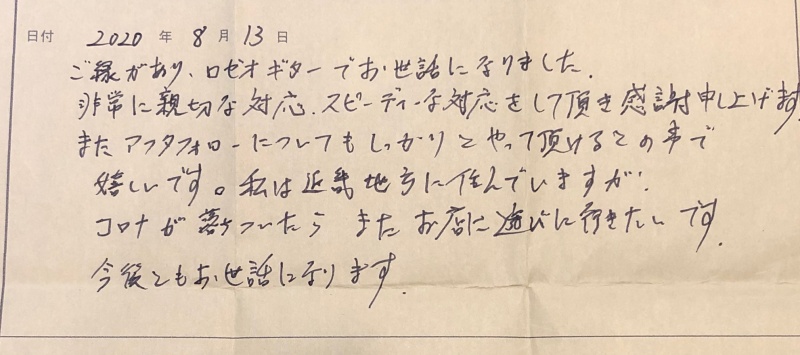 日付 2020 年 8 月 13 日
ご縁があり、ロゼオギターでお世話になりました.
非常に親切な対応、スピーディーな対応をして頂き感謝申し上げます
またアフタフォローについてもしっかりとやって頂けるとの事で
嬉しいです。私は近畿地方に住んでいますが、
コロナが落ついたら またお店に遊びに行きたいです.
今後ともお世話になります.